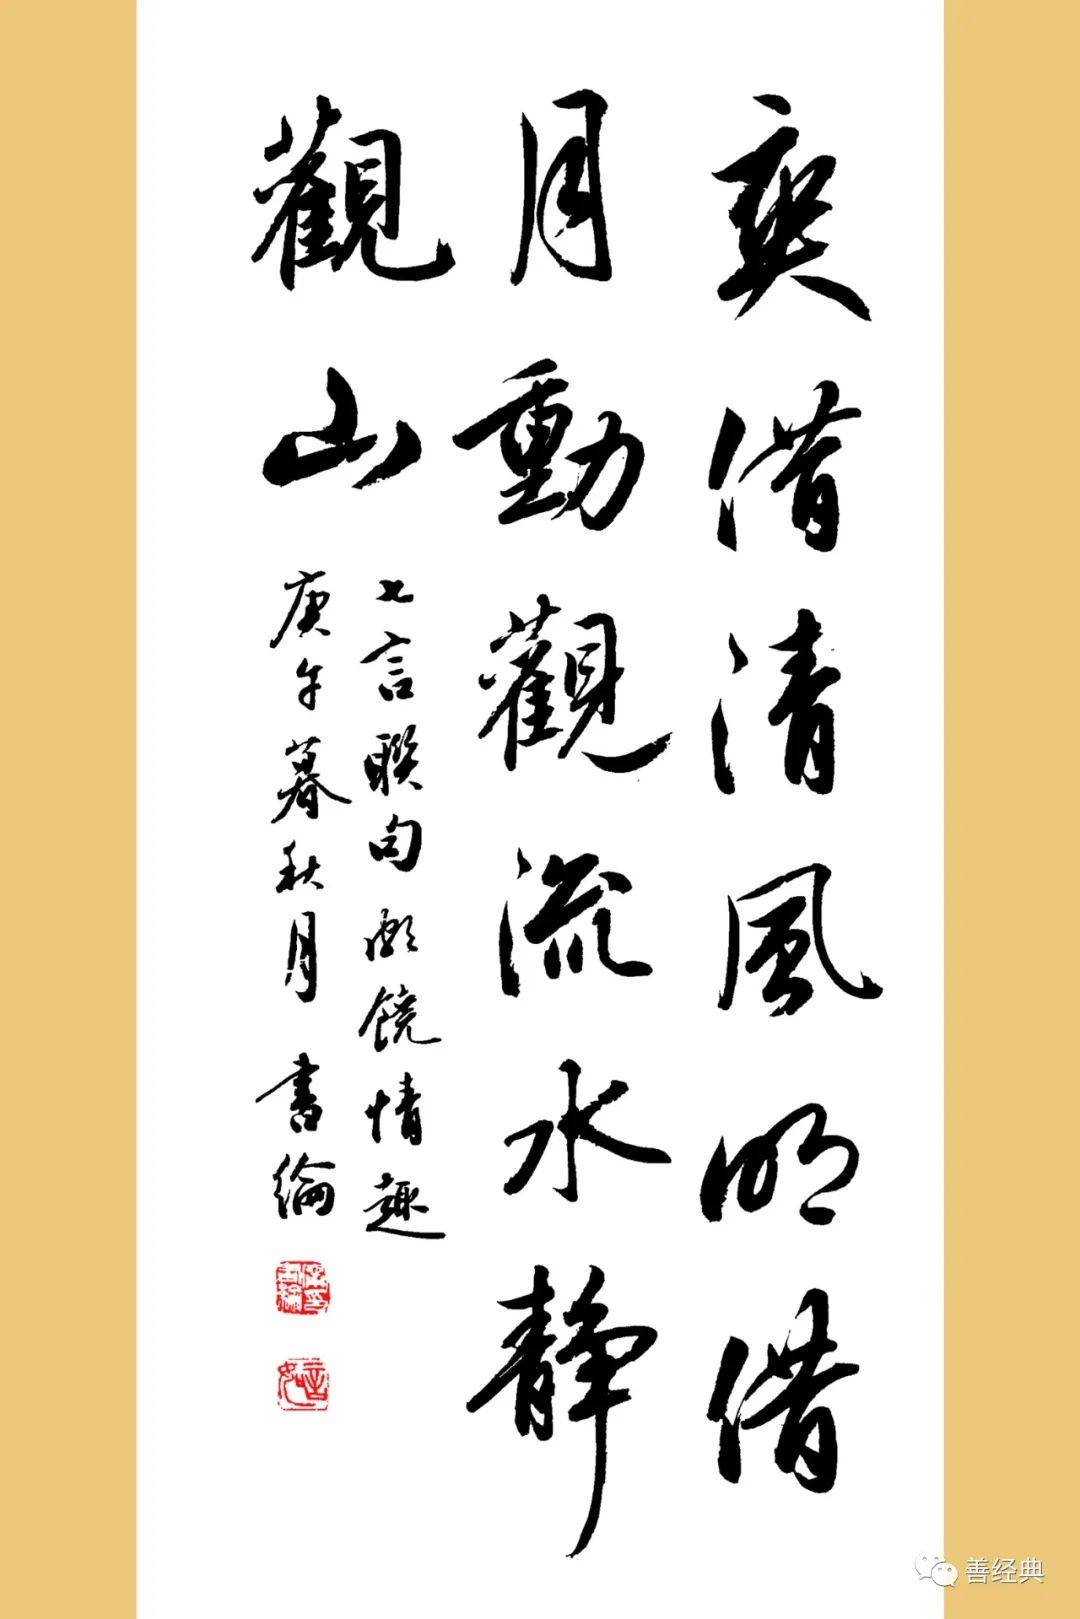 爽借清風明借
月動觀流水靜
觀山
七言联句颇饒情趣
庚午暮秋月 書綸
善经典